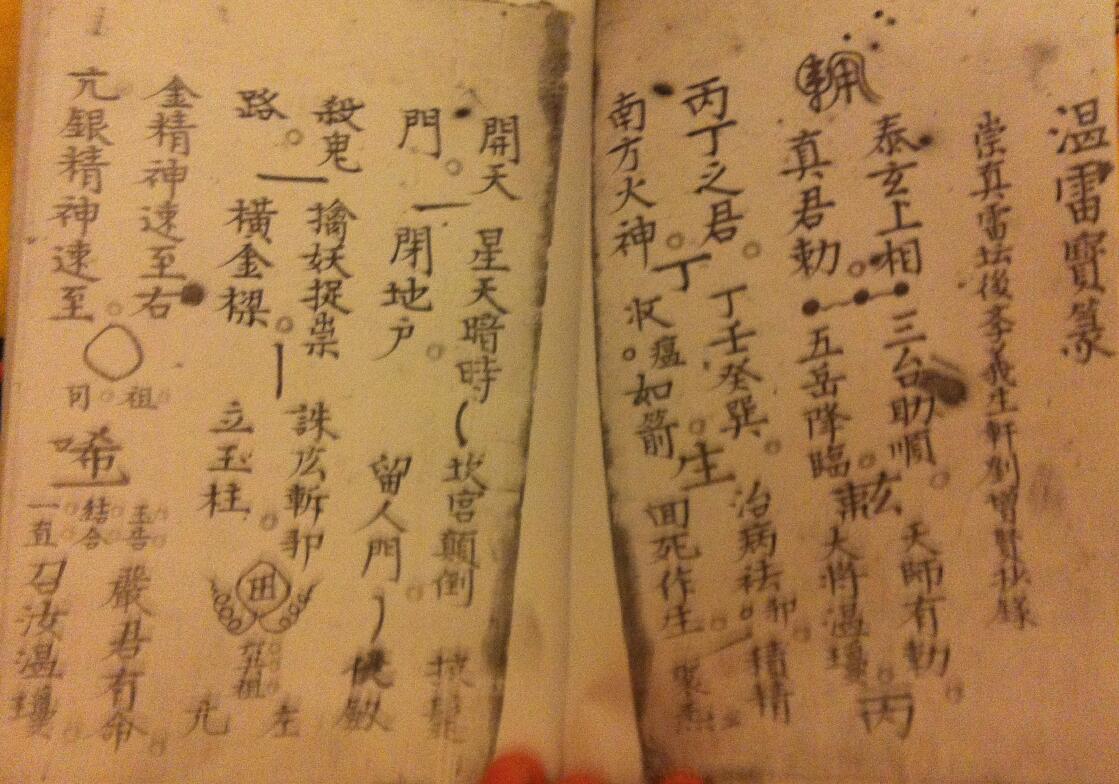 温雷寶篆
崇真雷坛後孝義生軒刘增賢抄錄
泰玄上相 三台助順 天師有勅
真君勅 五岳降臨 大將温瓊 丙
丙丁之君 丁壬癸巽 治病祛邪 精精
南方火神 丁 收瘟如箭 生 囬死作生
開天 星天暗時 坎宫顛倒
門 閉地户 留人門
殺鬼 擒妖捉祟 誅広斬邪 左
路 橫金樑 立玉柱 亢
金精神速至右 祖 玉告 嚴君有命
亢銀精神速至 唏 結合 一直 召汝温瓊